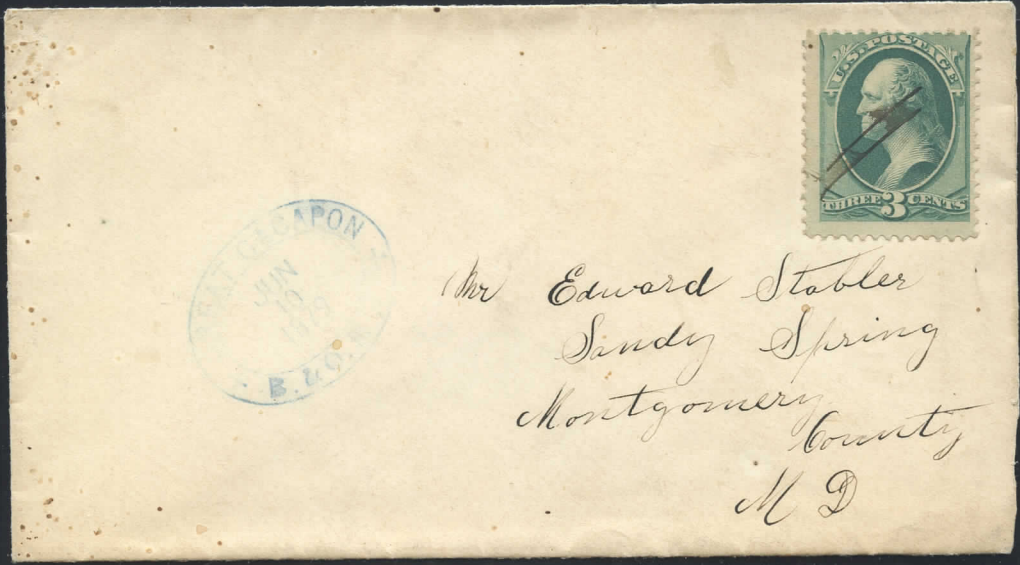 U.S. POSTAGE
THREE 3 CENTS
CACAPON
JUN
19
B. & O. R.
Mr Edward Stabler
Sandy Spring
Montgomery
County
M D